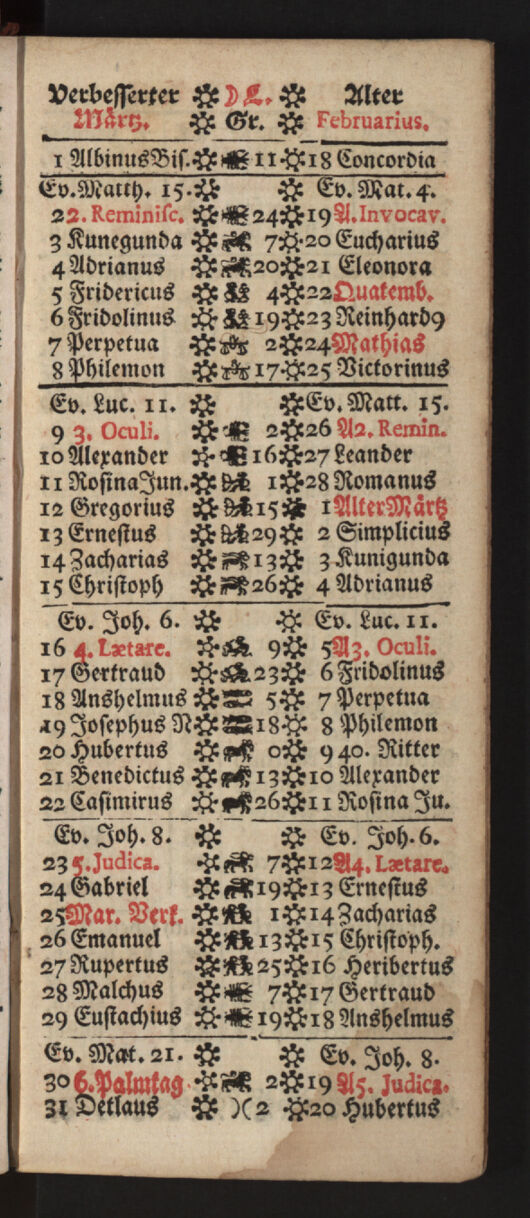 Verbesserter D L. Alter
Mårtz. Gr. Februarius.
1 Albinus Bis. 11 18 Concordia
Ev. Matth. 15. Ev. Mat. 4.
2 2. Reminisc. 24 19 A. Invocav.
3 Kunegunda 7 20 Eucharius
4 Adrianus 20 21 Eleonora
5 Fridericus 4 22 Quatemb.
6 Fridolinus 19 23 Reinhard9
7 Perpetua 2 24 Mathias
8 Philemon 17 25 Victorinus
Ev. Luc. 11. Ev. Matt. 15.
9 3. Oculi. 2 26 A2. Remin.
10 Alexander 16 27 Leander
11 Rosina Jun. 1 28 Romanus
12 Gregorius 15 1 Alter Mårtz
13 Ernestus 29 2 Simplicius
14 Zacharias 13 3 Kunigunda
15 Christoph 26 4 Adrianus
Ev. Joh. 6. Ev. Luc. 11.
16 4. Lætare. 9 5 A3. Oculi.
17 Gertraud 23 6 Fridolinus
18 Anshelmus 5 7 Perpetua
19 Josephus N 18 8 Philemon
20 Hubertus 0 9 40. Ritter
21 Benedictus 13 10 Alexander
22 Casimirus 26 11 Rosina Ju.
Ev. Joh. 8. Ev. Joh. 6.
23 5. Judica. 7 12 A4. Lætare.
24 Gabriel 19 13 Ernestus
25 Mar. Verk. 1 14 Zacharias
26 Emanuel 13 15 Christoph.
27 Rupertus 25 16 Heribertus
28 Malchus 7 17 Gertraud
29 Eustachius 19 18 Anshelmus
Ev. Mat. 21. Ev. Joh. 8.
30 6. Palmtag 2 19 A5. Judica.
31 Detlaus )( 2 20 Hubertus